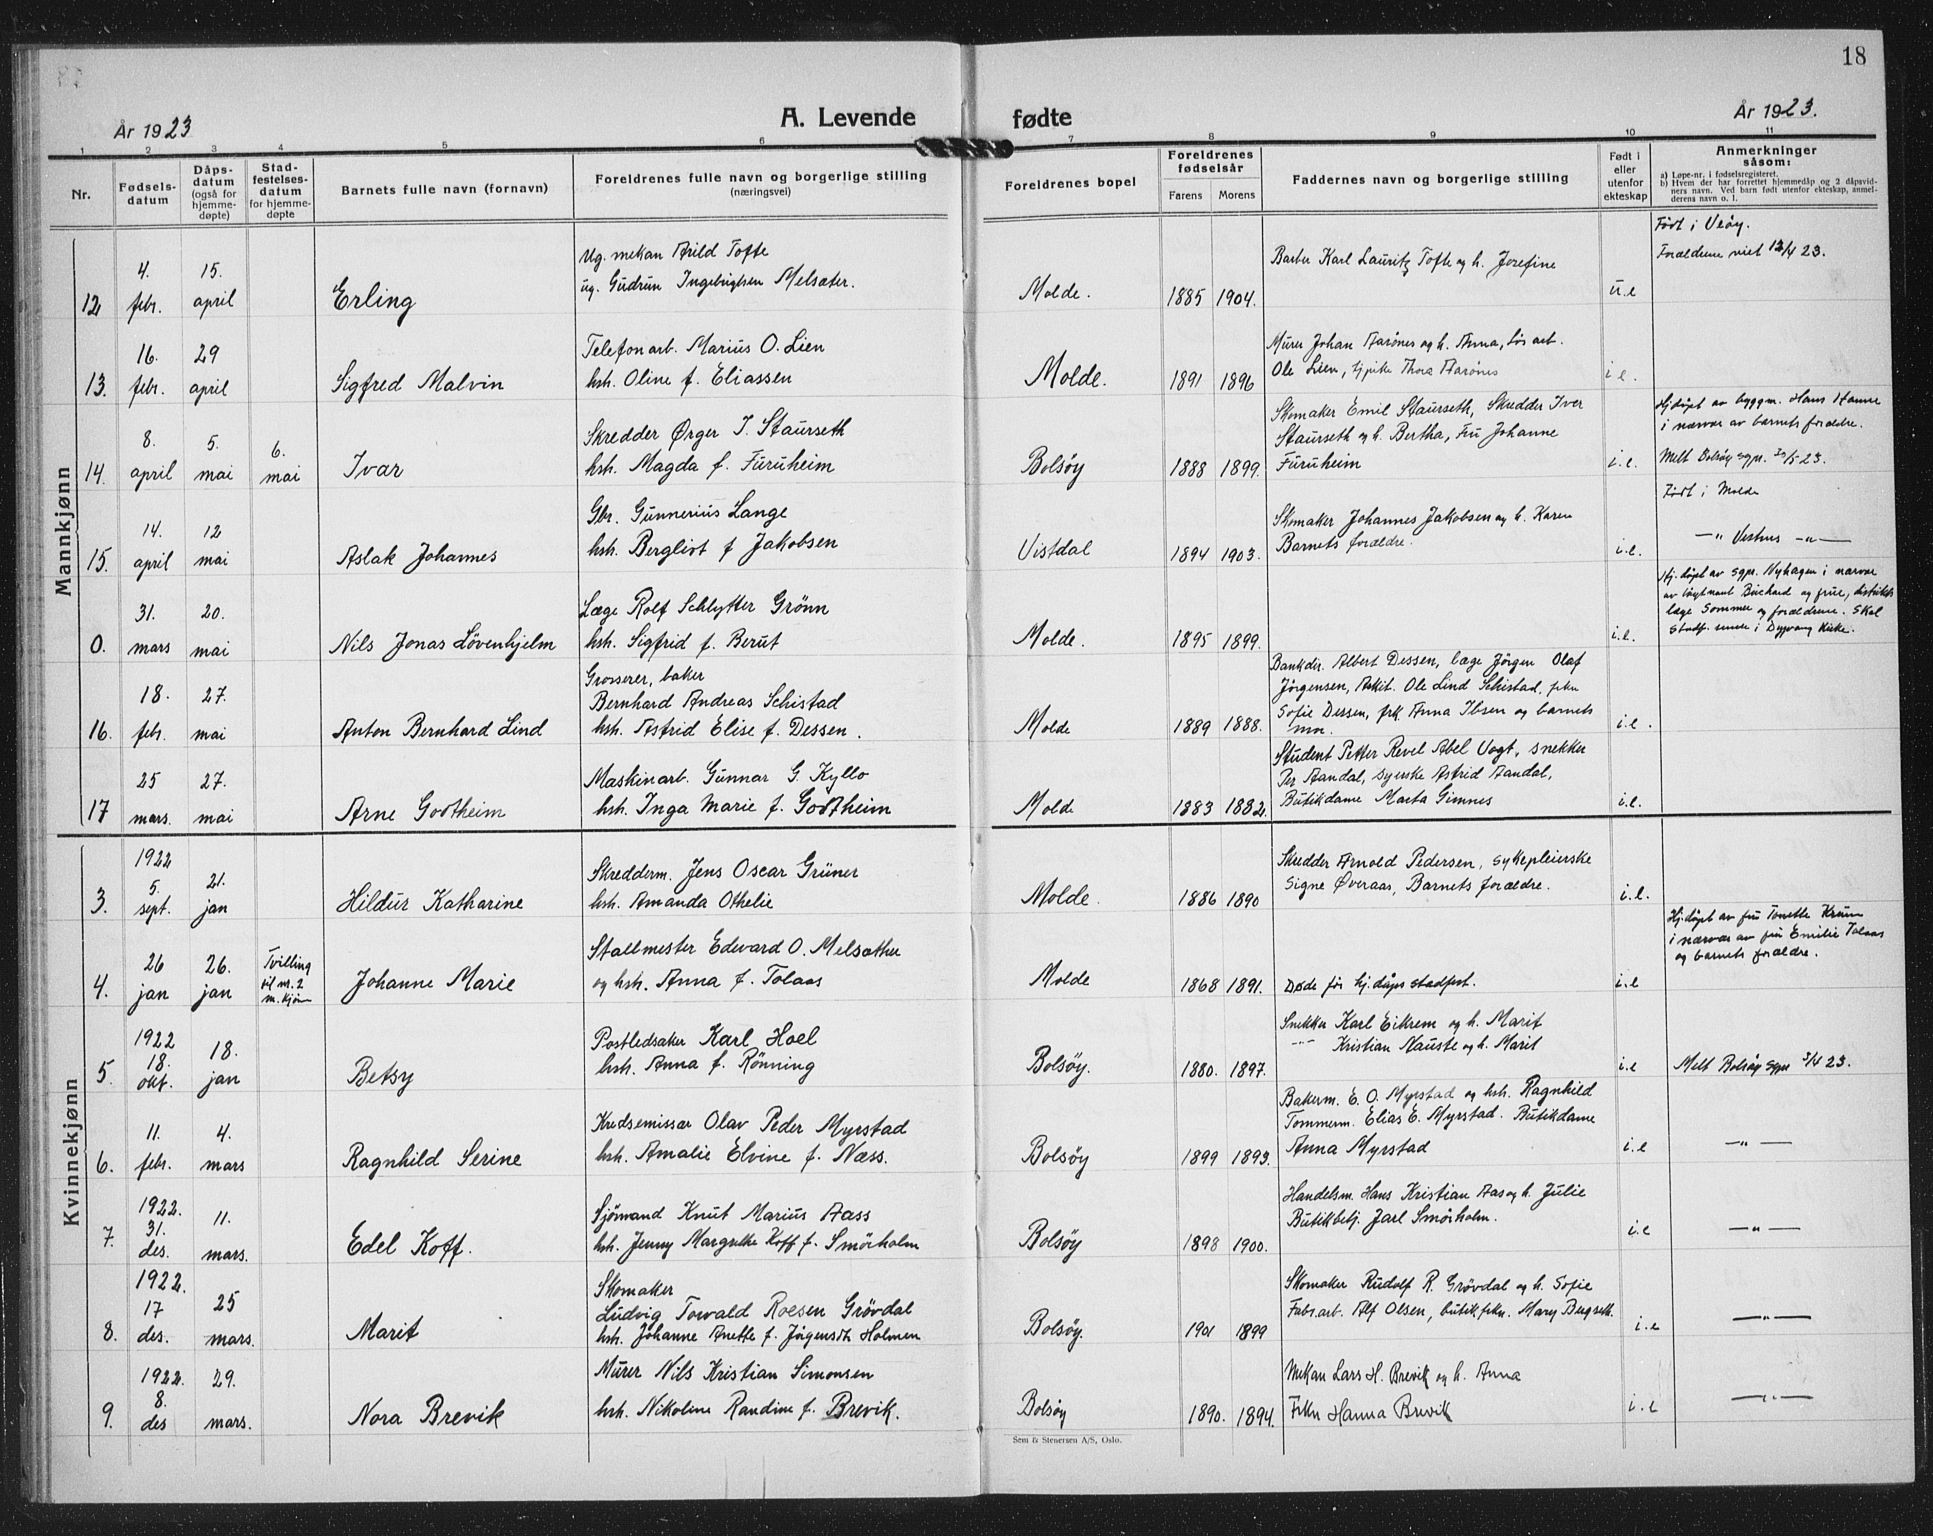 18
År 1923
A. Levende fødte
År 1923.
1 2 3 4 5 6 7 8 9 10 11
Nr.
Fødsels-
datum
Dåps-
datum
(også for
hjemme-
døpte)
Stad-
festelses-
datum
for hjemme-
døpte
Barnets fulle navn (fornavn)
Foreldrenes fulle navn og borgerlige stilling
(næringsvei)
Foreldrenes bopel
Foreldrenes
fødselsår
Farens Morens
Faddernes navn og borgerlige stilling
Født i
eller
utenfor
ekteskap
Anmerkninger
såsom:
a) Løpe-nr. i fødselsregisteret.
b) Hvem der har forrettet hjemmedåp og 2 dåpsvid-
ners navn. Ved barn født utenfor ekteskap, anmel-
derens navn o. l.
Mannkjønn
12
4.
febr.
15.
april
Erling
Ug. mekan Arild Tofte
ug. Gudrun Ingebrigtsen Melsæter.
Molde.
1885 1904.
Barber Karl Lauritz Tofte og h. Josefine
u.e
Født i Veøy.
Forældrene viet 12/4 23.
13.
16.
febr.
29
april
Sigfred Malvin
Telefonarb. Marius O. Lien
hsh. Oline f. Eliassen
Molde.
1891 1896
Murer Johan Aarønes og h. Anna, løsarb.
Ole Lien, hjpike Thora Aarønes
i e.
14
8.
april
5.
mai
6.
mai
Ivar
Skredder Ørger I. Staurseth
hsh. Magda f. Furuheim
Bolsøy
1888 1899.
Skomaker Emil Staurseth, Skredder Iver
Staurseth og h. Bertha, Fru Johanne
Furuheim
i.e.
Hj.døpt av byggm. Hans
i nærvær av barnets forældre.
Melt Bolsøy sgpr. 23.
15.
14.
april
12
mai
Aslak Johannes
Gbr. Gunnerius Lange
hsh. Bergliot f Jakobsen
Vistdal
1894 1903.
Skomaker Johannes Jakobsen og h. Karen
Barnets forældre.
i.e.
Født i Molde
—"— —"—
0.
31.
mars
20.
mai
Nils Jonas Løvenhjelm
Læge Rolf Schlytter Grönn
hsh. Sigfrid f. Berut
Molde.
1895 1899.
i.e.
Hj.døpt av sgpr. Nyhagen i nærvær
av løytnant og frue, distrikts
læge Sommer og forældrene. Skal
stadf. senere i Dypvaag Kirke.
16.
18.
febr.
27.
mai
Anton Bernhard Lind
Grosserer, baker
Bernhard Andreas Schistad
hsh. Astrid Elise f. Dessen.
Molde
1889 1888.
Bankdir. Albert Dessen, læge Jörgen Olaf
Jörgensen, Arkit. Ole Lind Schistad, frkn
Sofie Dessen, frk. Anna Ibsen og barnets
mor.
i.e.
17
25
mars.
27.
mai
Arne Godtheim
Maskinarb. Gunnar G. Kyllo
hsh. Inga Marie f. Godtheim
Molde
1883 1882.
Student Petter Revel Abel Vogt, snekker
Per Aandal, syerske Astrid Aandal,
Butikdame Marta Gimnes
i.e.
Kvinnekjønn
3.
1922
5.
sept.
21.
jan
Hildur Katharine
Skredderm. Jens Oscar Grüner
hsh. Amanda Othelie
Molde.
1886 1890
Skredder Arnold Pedersen, sykepleierske
Signe Øveraas, Barnets forældre.
i.e.
4.
26
jan
26.
jan
Tvilling
til nr. 2
m.kjøn
Johanne Marie
Stallmester Edevard O. Melsæther
og hsh. Anna f. Tolaas
Molde
1868 1891.
Døde før hj.dåpes stadfest.
i.e
Hj.døpt av fru Tonette
i nærvær av fru Emilie Tolaas
og barnets forældre.
5.
1922
18.
okt.
18.
jan
Betsy
Postledsaker Karl Hoel
hsh. Anna f. Rönning
Bolsøy.
1880. 1897.
Snekker Karl Eikrem og h. Marit
—"— Kristian Nauste og h. Marit
i.e
Melt Bolsøy sgpr 3/4 23.
6.
11.
febr.
4.
mars
Ragnhild Serine
Kredsemissær Olav Peder Myrstad
hsh. Amalie Elvine f. Næss.
Bolsøy
1899 1893.
Bakerm. E. O. Myrstad og hsh. Ragnhild
Tommerm. Elias E. Myrstad. Butikdame
Anna Myrstad
i.e
—"—
7.
1922.
31.
des.
11.
mars.
Edel Koff.
Sjömand Knut Marius Aass
hsh. Jenny Margrethe Koff f. Smörholm
Bolsøy
1898 1900.
Handelsm. Hans Kristian Aas og h. Julie
Butikbetj. Jarl Smörholm.
i.e
—"—
8.
1922.
17
des.
25
mars.
Marit
Skomaker
Ludvig Torvald Roesen Grövdal
hsh. Johanne Anette f. Jörgensdt. Holmen
Bolsøy.
1901 1899
Skomaker Rudolf R. Grövdal og h. Sofie
Fabr.arb. Alf Olsen, butikfrkn. Mary
i.e
—"—
9.
1922.
8.
des
29.
mars.
Nora Brevik
Murer Nils Kristian Simonsen
hsh. Nikoline Randine f. Brevik.
Bolsøy
1890. 1894.
Mekan Lars H. Brevik og h. Anna
Frkn Hanna Brevik
i.e
—"—
Sem & Stenersen A/S, Oslo.